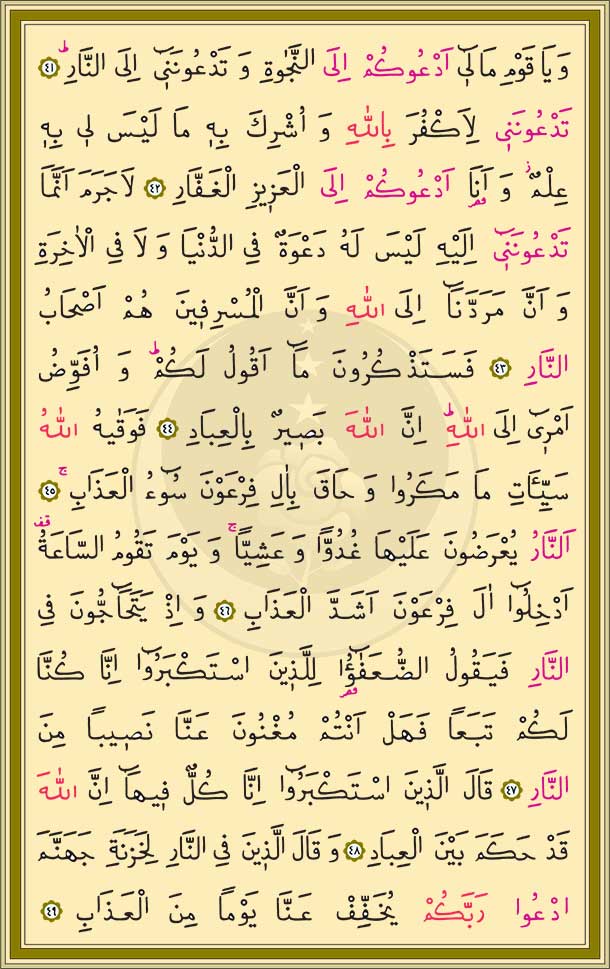 وَيَا قَوْمِ مَا لٓي اَدْعُوكُمْ اِلَى النَّجٰوةِ وَ تَدْعُونَنٓي اِلَى النَّارِۜ ﴿٤١﴾
تَدْعُونَنٖي لِاَكْفُرَ بِاللّٰهِ وَ اُشْرِكَ بِهٖ مَا لَيْسَ لٖي بِهٖ
عِلْمٌۘ وَ اَنَا۬ اَدْعُوكُمْ اِلَى الْعَزٖيزِ الْغَفَّارِ ﴿٤٢﴾ لَاجَرَمَ اَنَّمَا
تَدْعُونَنٖٓي اِلَيْهِ لَيْسَ لَهُ دَعْوَةٌ فِي الدُّنْيَا وَ لَا فِي الْاٰخِرَةِ
وَ اَنَّ مَرَدَّنَٓا اِلَى اللّٰهِ وَ اَنَّ الْمُسْرِفٖينَ هُمْ اَصْحَابُ
النَّارِ ﴿٤٣﴾ فَسَتَذْكُرُونَ مَٓا اَقُولُ لَكُمْۜ وَ اُفَوِّضُ
اَمْرٖٓي اِلَى اللّٰهِۜ اِنَّ اللّٰهَ بَصٖيرٌ بِالْعِبَادِ ﴿٤٤﴾ فَوَقٰيهُ اللّٰهُ
سَيِّـَٔاتِ مَا مَكَرُوا وَ حَاقَ بِاٰلِ فِرْعَوْنَ سُٓوءُ الْعَذَابِۚ ﴿٤٥﴾
اَلنَّارُ يُعْرَضُونَ عَلَيْهَا غُدُوًّا وَ عَشِيًّاۚ وَ يَوْمَ تَقُومُ السَّاعَةُ۠
اَدْخِلُٓوا اٰلَ فِرْعَوْنَ اَشَدَّ الْعَذَابِ ﴿٤٦﴾ وَ اِذْ يَتَحَٓاجُّونَ فِي
النَّارِ فَيَقُولُ الضُّعَفٰٓؤُ۬ا لِلَّذٖينَ اسْتَكْبَرُٓوا اِنَّا كُنَّا
لَكُمْ تَبَعًا فَهَلْ اَنْتُمْ مُغْنُونَ عَنَّا نَصٖيبًا مِنَ
النَّارِ ﴿٤٧﴾ قَالَ الَّذٖينَ اسْتَكْبَرُٓوا اِنَّا كُلٌّ فٖيهَٓا اِنَّ اللّٰهَ
قَدْ حَكَمَ بَيْنَ الْعِبَادِ ﴿٤٨﴾ وَ قَالَ الَّذٖينَ فِي النَّارِ لِخَزَنَةِ جَهَنَّمَ
ادْعُوا رَبَّكُمْ يُخَفِّفْ عَنَّا يَوْمًا مِنَ الْعَذَابِ ﴿٤٩﴾